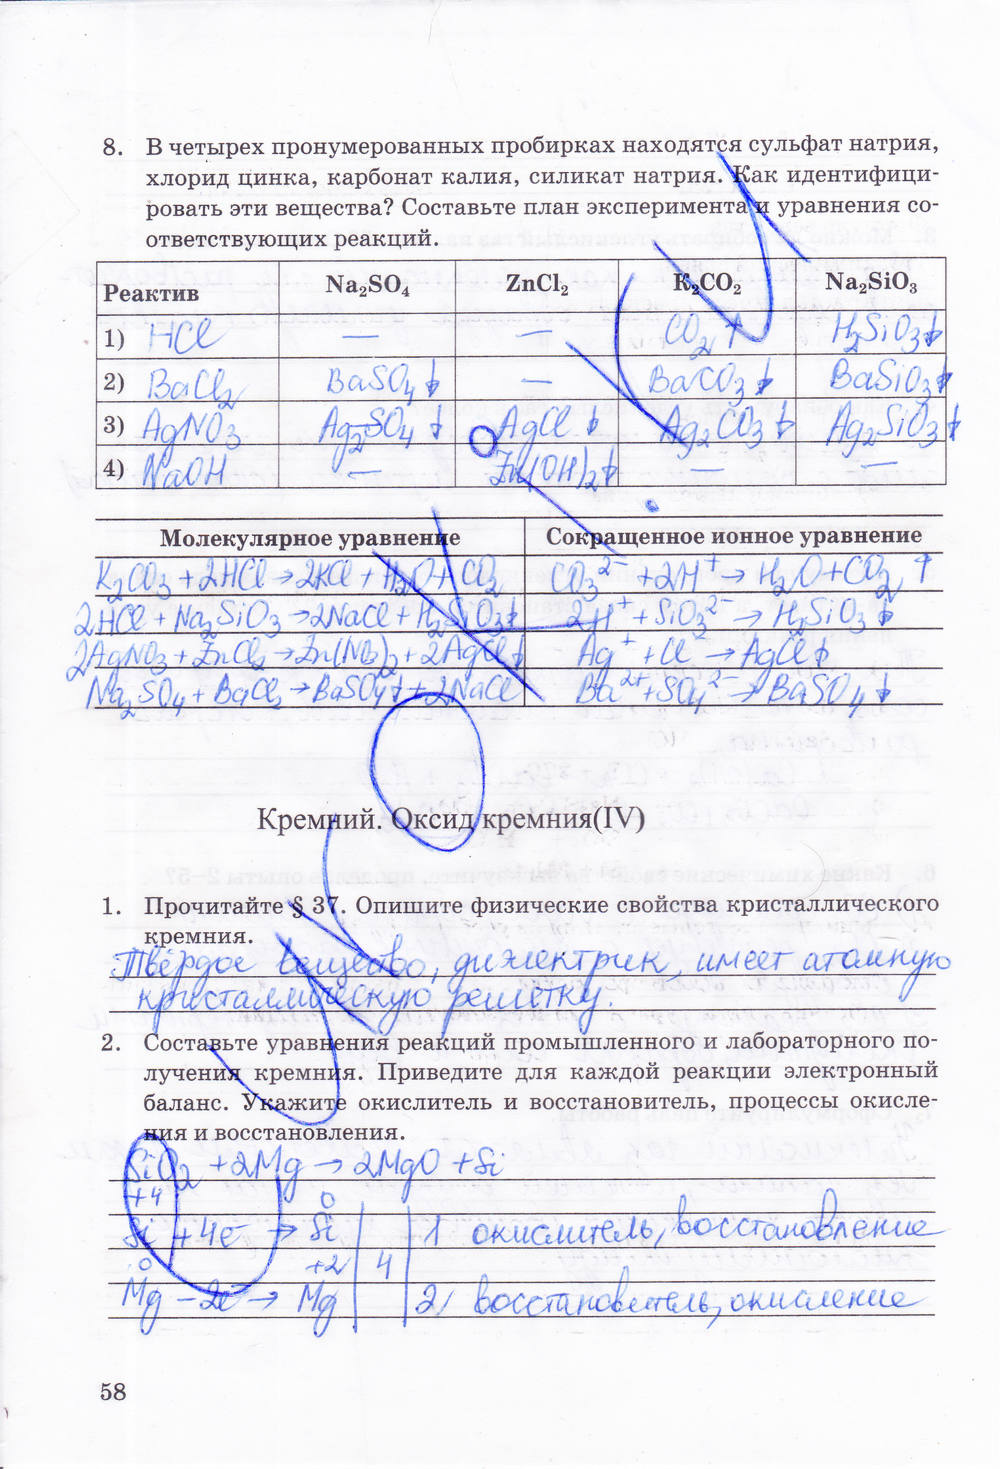 8. В четырех пронумерованных пробирках находятся сульфат натрия,
хлорид цинка, карбонат калия, силикат натрия. Как идентифици-
ровать эти вещества? Составьте план эксперимента и уравнения со-
ответствующих реакций.
Реактив Na₂SO₄ ZnCl₂ K₂CO₂ Na₂SiO₃
1) HCl — — CO₂ ↑ H₂SiO₃↓
2) BaCl₂ BaSO₄↓ — BaCO₃↓ BaSiO₃↓
3) AgNO₃ Ag₂SO₄ ↓ AgCl ↓ Ag₂CO₃↓ Ag₂SiO₃↓
4) NaOH — Zn(OH)₂↓ — —
Молекулярное уравнение Сокращенное ионное уравнение
K₂CO₃ + 2HCl → 2KCl + H₂O + CO₂ CO₃²⁻ + 2H⁺ → H₂O + CO₂ ↑
2HCl + Na₂SiO₃ → 2NaCl + H₂SiO₃↓ 2H⁺ + SiO₃²⁻ → H₂SiO₃↓
2AgNO₃ + ZnCl₂ → Zn(NO₃)₂ + 2AgCl↓ Ag⁺ + Cl⁻ → AgCl↓
Na₂SO₄ + BaCl₂ → BaSO₄↓ + 2NaCl Ba²⁺ + SO₄²⁻ → BaSO₄↓
Кремний. Оксид кремния(IV)
1. Прочитайте § 37. Опишите физические свойства кристаллического
кремния.
Твёрдое вещество, диэлектрик, имеет атомную
кристаллическую решётку.
2. Составьте уравнения реакций промышленного и лабораторного по-
лучения кремния. Приведите для каждой реакции электронный
баланс. Укажите окислитель и восстановитель, процессы окисле-
ния и восстановления.
SiO₂ + 2Mg → 2MgO + Si
+4 0
Si + 4e⁻ → Si 1 окислитель, восстановление
0 +2 4
Mg – 2e⁻ → Mg 2 восстановитель, окисление
58